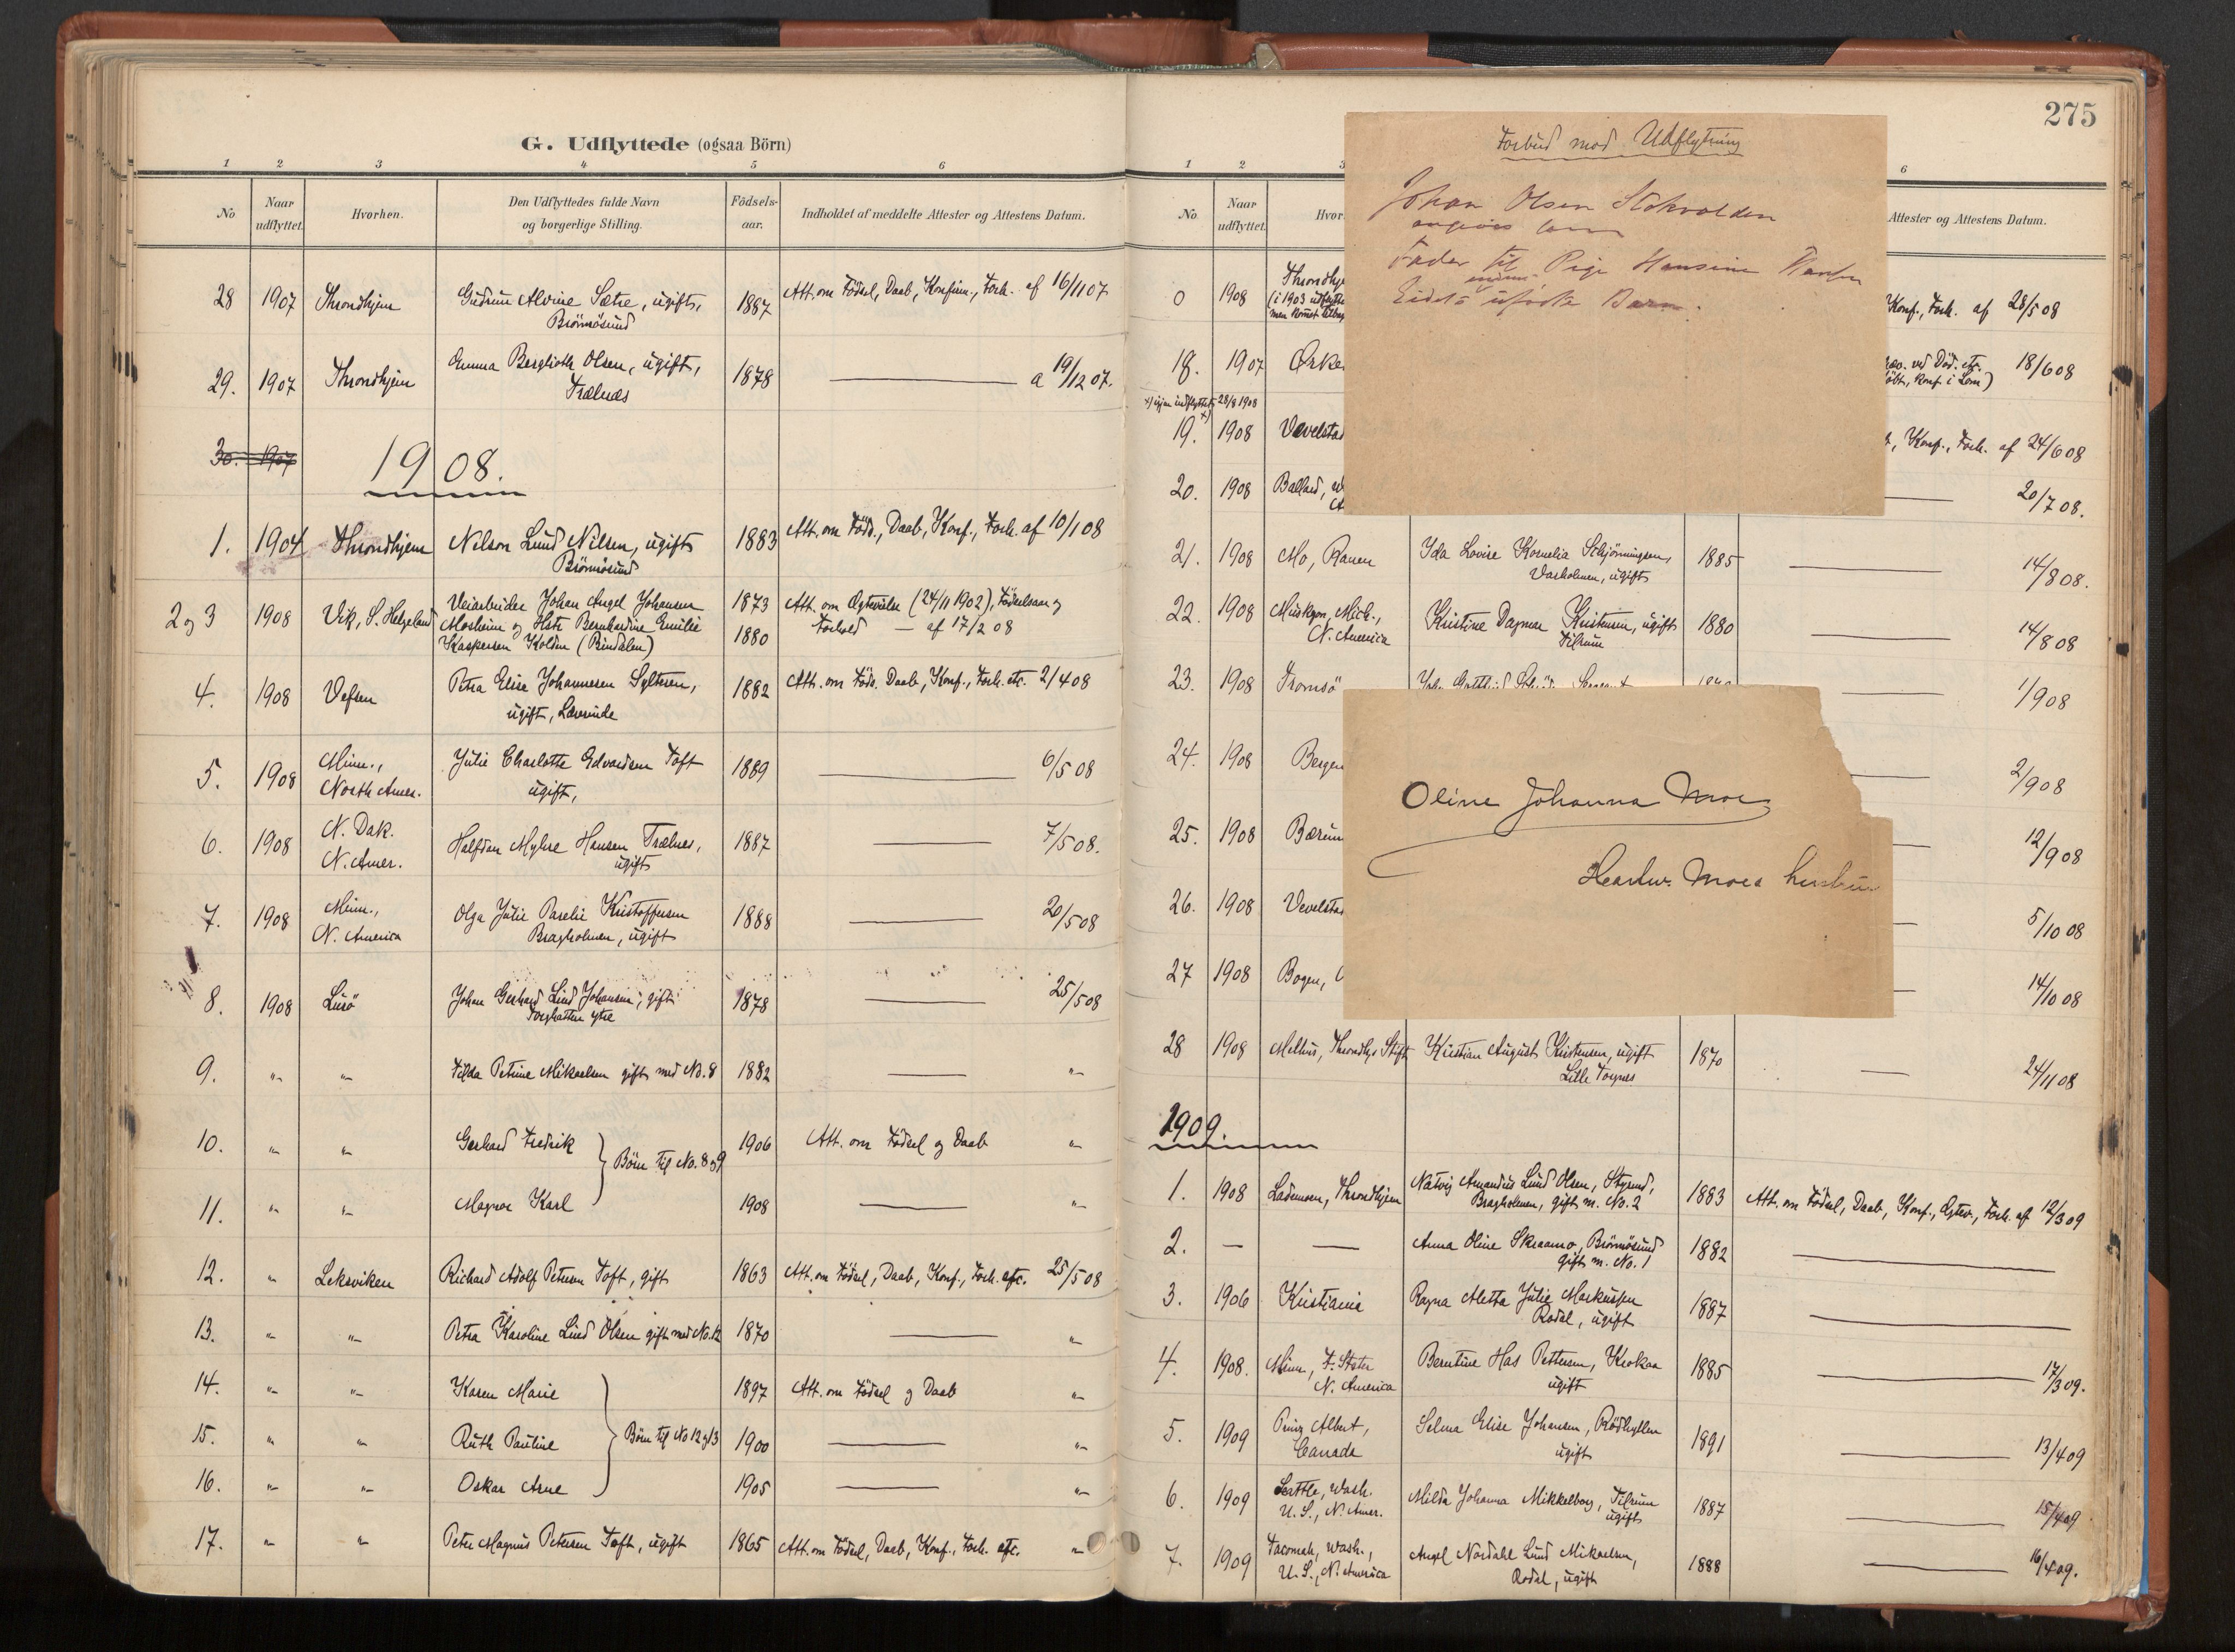 G. Udflyttede (ogsaa Börn)
1 2 3 4 5 6
No
Naar udflyttet.
Hvorhen.
Den Udflyttedes fulde Navn og borgerlige Stilling.
Födsels-aar.
Indholdet af meddelte Attester og Attestens Datum.
28 1907 Throndhjem Gudrun Alvine Sætre, ugift, 1887 Att. om Födsel, Daab, Konfirm., Forh. af 16/11 07
Brönnösund
29. 1907 Throndhjem Emma Berglioth Olsen, ugift, 1878 — a 19/12 07.
Trælnæs
30. 1907
1908.
1. 1904 Throndhjem Nelson Lund Nilsen, ugift 1883 Att. om Föds., Daab, Konf., Forh. af 10/1 08
Brönnösund
2 og 3 1908 Vik, S. Helgeland Veiarbeider Johan Angel Johansen 1873 Att. om Ægtevielse (24/11 1902), Födselsaar og
Mosheim og Hstr. Bernhardine Emilie 1880 Forhold — af 17/2 08
Kaspersen Kolden (Bindalen)
4. 1908 Vefsen Petra Elise Johannesen Sylteren, 1882 Att. om Föds. Daab, Konf., Forh. etc. 2/4 08
ugift, Lærerinde
5. 1908 Minn., Julie Charlotte Edvardsen Toft 1889 — 6/5 08
North Amer. ugift,
6. 1908 N. Dak. Halfdan Myhre Hansen Trælnes, 1887 — 7/5 08.
N. Amer. ugift
7. 1908 Minn., Olga Julie Parelie Kristoffersen 1888 — 20/5 08
N. America Bragholmen, ugift
8. 1908 Lurö Johan Gerhard Lind Johansen, gift 1878 — 25/5 08
Torghatten ytre
9. " " Tilda Petrine Mikaelsen gift med No. 8 1882 — "
10. " " Gerhard Fredrik 1906 Att. om Födsel og Daab "
Börn til No. 8 og 9
11. " " Magnar Karl 1908 — "
12. " Leksviken Richard Adolf Petersen Toft, gift 1863 Att. om Födsel, Daab, Konf., Forh. etc. 25/5 08
13. " " Petra Karoline Lind Olsen gift med No. 12 1870 — "
14. " " Karen Marie 1897 Att. om Födsel og Daab "
15. " " Ruth Pauline Börn til No 12 og 13 1900 — "
16. " " Oskar Arne 1905 — "
17. " " Peter Magnus Petersen Toft, ugift 1865 Att. om Födsel, Daab, Konf., Forh. etc. "
275
1 2 3 6
No.
Naar udflyttet.
Hvor
Attester og Attestens Datum.
Forbud mod Udflytning
Johan Olsen
angives som
Fader til Pige Hansine
ufödte Barn.
0 1908 Throndhje
(i 1903 udflytte
men kommet tilbag
Konf., Forh. af 28/5 08
18. 1907 Ørke
ved Död. etc. 18/6 08
döbt, konf. i Lom)
x) igjen indflyttet 28/8 1908
19. x) 1908 Vevelstad
, Konf., Forh. af 24/6 08
20. 1908 Ballard, W
20/7 08.
21. 1908 Mo, Ranen Ida Lovise Kornelia Schjönningsen, 1885 — 14/8 08.
Vasholmen, ugift
22. 1908 Muskgon, Mich., Kristine Dagmar Kristensen, ugift 1880 — 14/8 08
N. America Tilrum
23. 1908 Tromsö — 1/9 08
24. 1908 Bergen — 2/9 08
25. 1908 Bærum — 12/9 08
26. 1908 Vevelstad — 5/10 08
27 1908 Bogen, — 14/10 08
Oline Johanna Moe
Moes
28 1908 Melhus, Throndhjs Stift Kristian August Kristensen, ugift 1870 — 24/11 08
Lille Torgnes
1909.
1. 1908 Lademoen, Throndhjem Natvig Amandus Lund Olsen, Styrmd, 1883 Att. om Födsel, Daab, Konf., Egtev., Forh. af 12/3 09
Bragholmen, gift m. No. 2
2. — — Anna Oline Skraamo, Brönnösund 1882 —
gift m. No. 1
3. 1906 Kristiania Ragna Aletta Julie Markussen 1887 —
Rodal, ugift
4. 1908. Minn, F. Stater Berntine Has Pettersen, Krokaa 1885 — 17/3 09.
N. America ugift
5. 1909 Prinz Albert, Selma Elise Johansen, Rödhyllen 1891 — 13/4 09
Canada ugift
6. 1909 Seattle, Wash. Milda Johanna Mikkelborg, Tilrum 1887 — 15/4 09
U. S., N. Amer. ugift
7. 1909 Tacomah, Wash., Angel Nordahl Lund Mikaelsen, 1888 — 16/4 09.
U. S., N. America Rodal, ugift